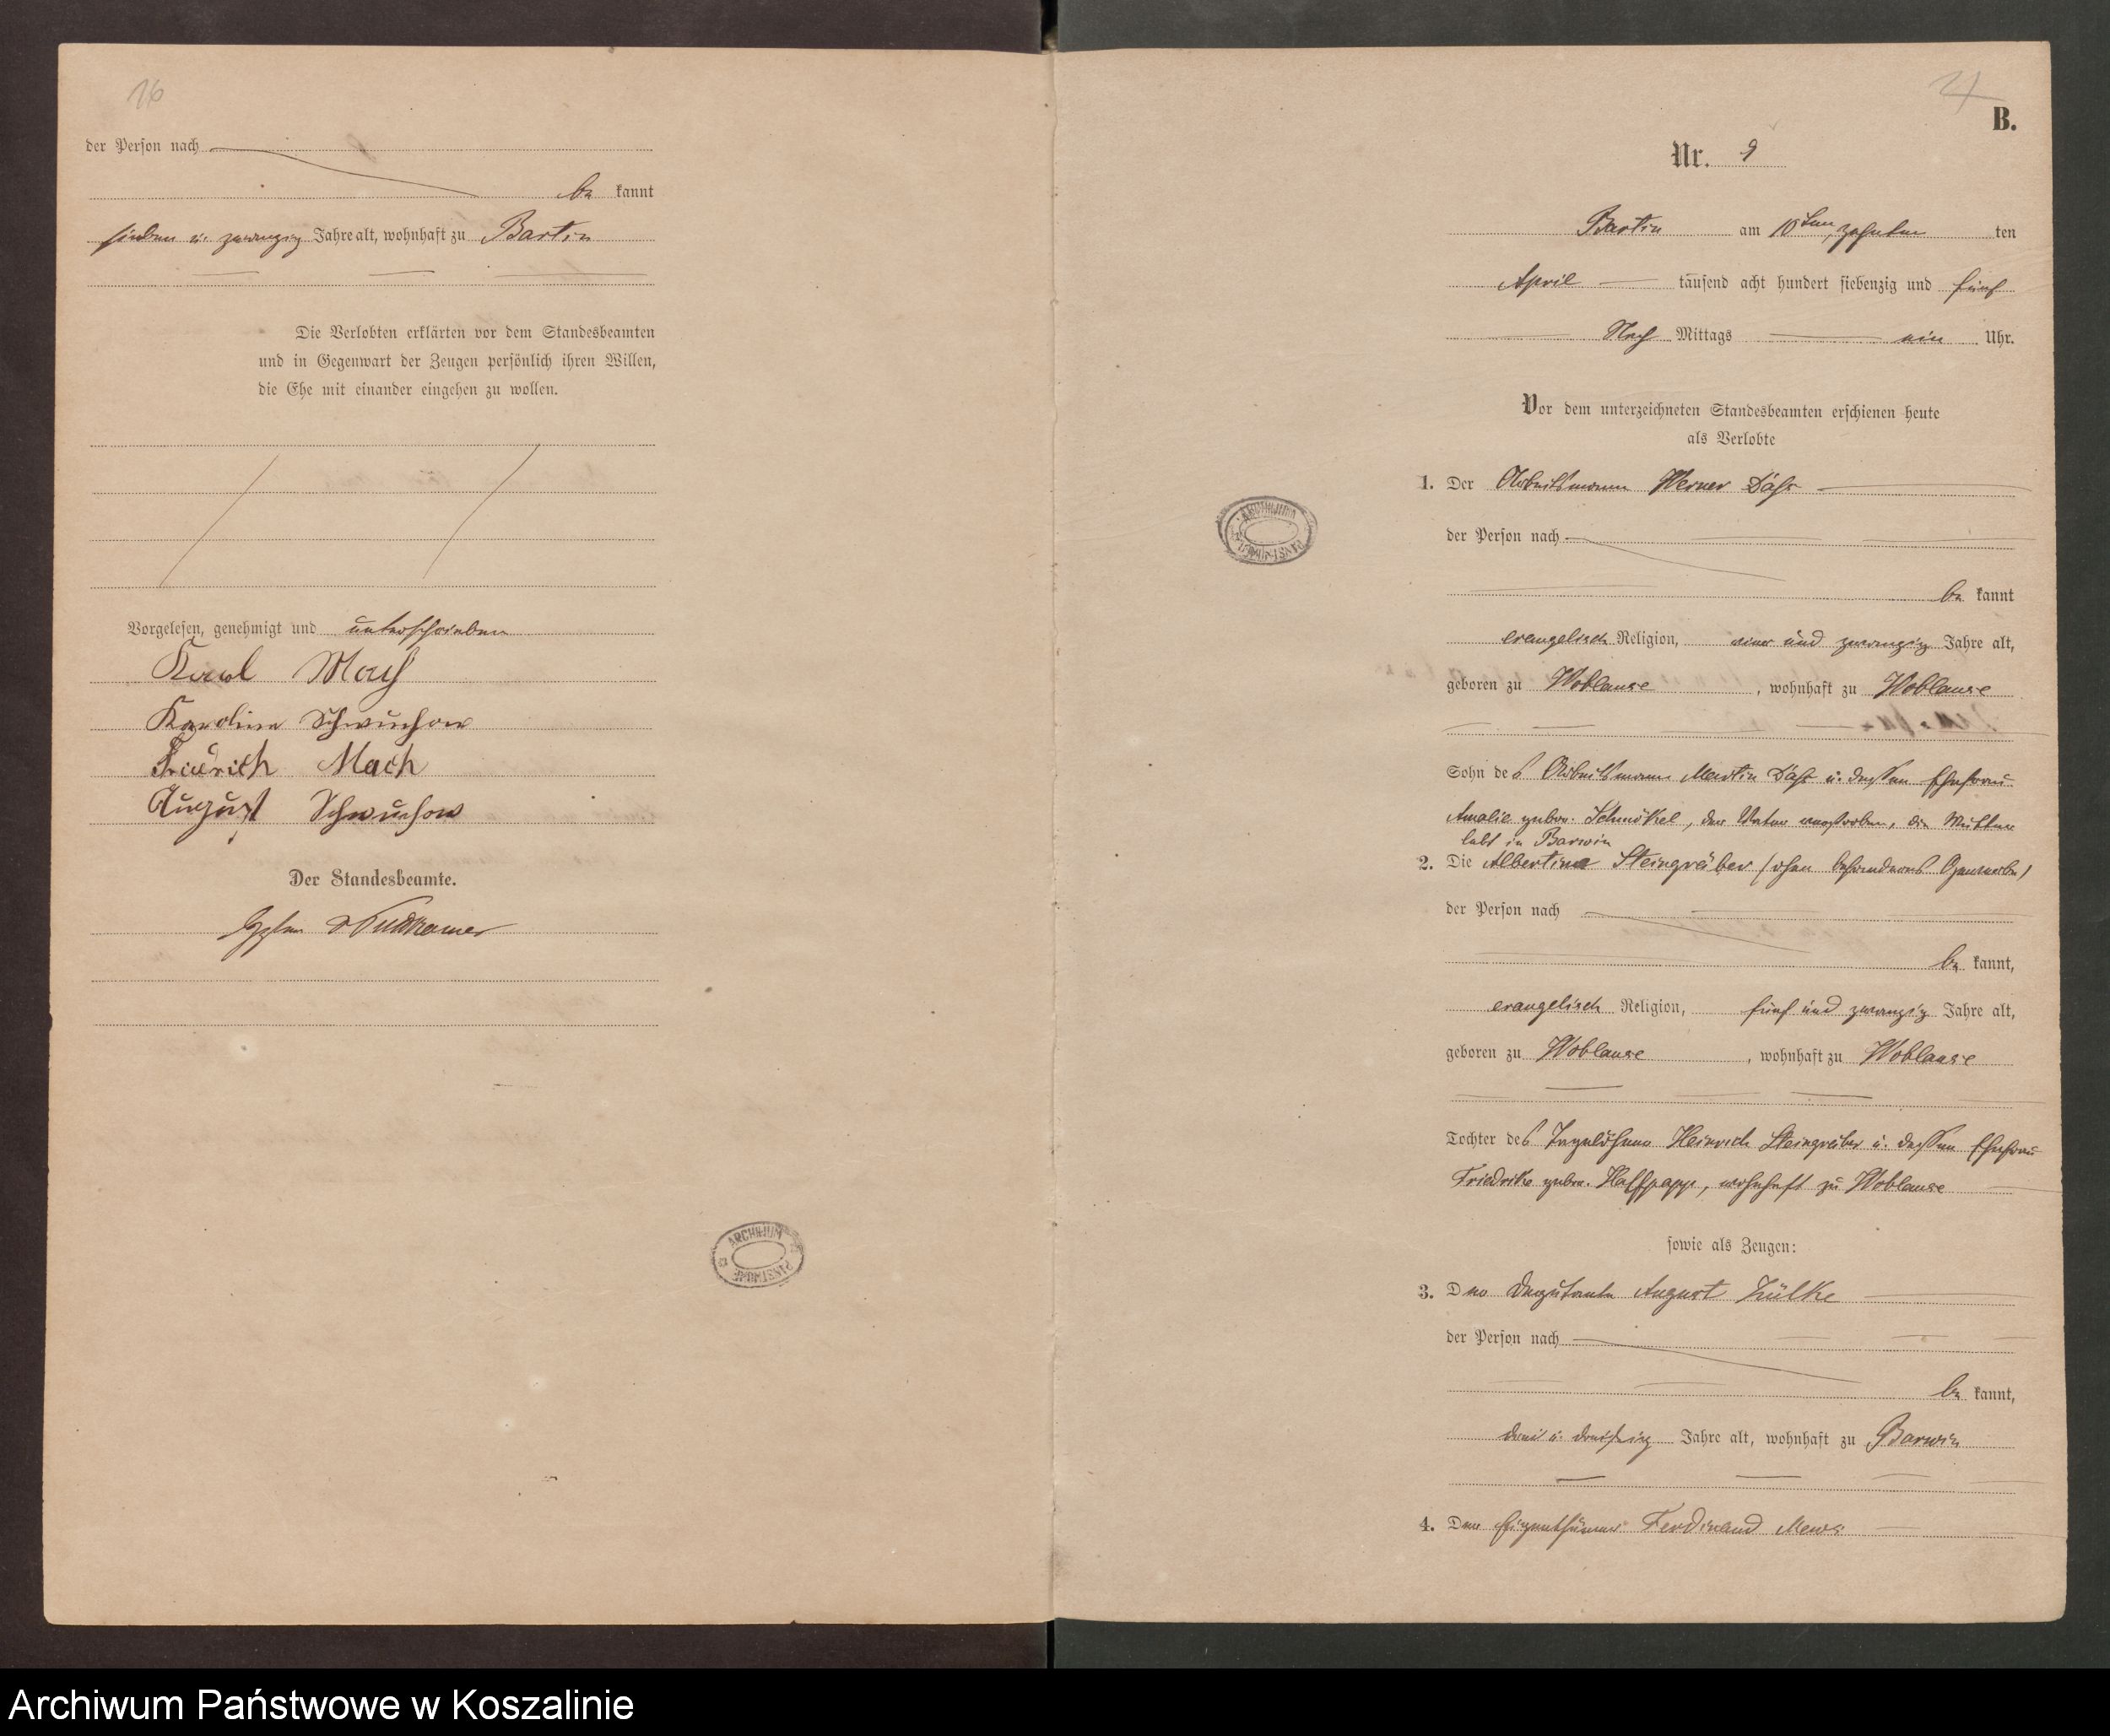 16
der Person nach
be kannt
sieben u. zwanzig Jahre alt, wohnhaft zu Bartin
Die Verlobten erklärten vor dem Standesbeamten
und in Gegenwart der Zeugen persönlich ihren Willen,
die Ehe mit einander eingehen zu wollen.
Vorgelesen, genehmigt und unterschrieben
Karl Mach
Karoline Schwuchow
Friedrich Mach
August Schwuchow
Der Standesbeamte.
Puttkamer
ARCHIWUM PAŃSTWOWE
B.
Nr. 9
Bartin am 10ten, zehnten ten
April tausend acht hundert siebenzig und fünf
Nach Mittags ein Uhr.
Vor dem unterzeichneten Standesbeamten erschienen heute
als Verlobte
1. Der Arbeitsmann Werner Dähs
der Person nach
be kannt
evangelisch Religion, einundzwanzig Jahre alt,
geboren zu Woblanse, wohnhaft zu Woblanse
Sohn des Arbeitsmann Martin Dähs u. dessen Ehefrau
Amalie gebor. Schmökel, der Vater verstorben, die Mutter
lebt in Barwin
2. Die Albertine Steingräber (ohne besonderes Gewerbe)
der Person nach
be kannt,
evangelisch Religion, fünf und zwanzig Jahre alt,
geboren zu Woblanse, wohnhaft zu Woblanse
Tochter des Tagelöhner Heinrich Steingräber u. dessen Ehefrau
Friedrike gebor. Haffpapp, wohnhaft zu Woblanse
sowie als Zeugen:
3. Der Deputante August Zülke
der Person nach
be kannt,
drei u. dreißig Jahre alt, wohnhaft zu Barwin
4. Der Eigenthümer Ferdinand Mews
ARCHIWUM PAŃSTWOWE
Archiwum Państwowe w Koszalinie